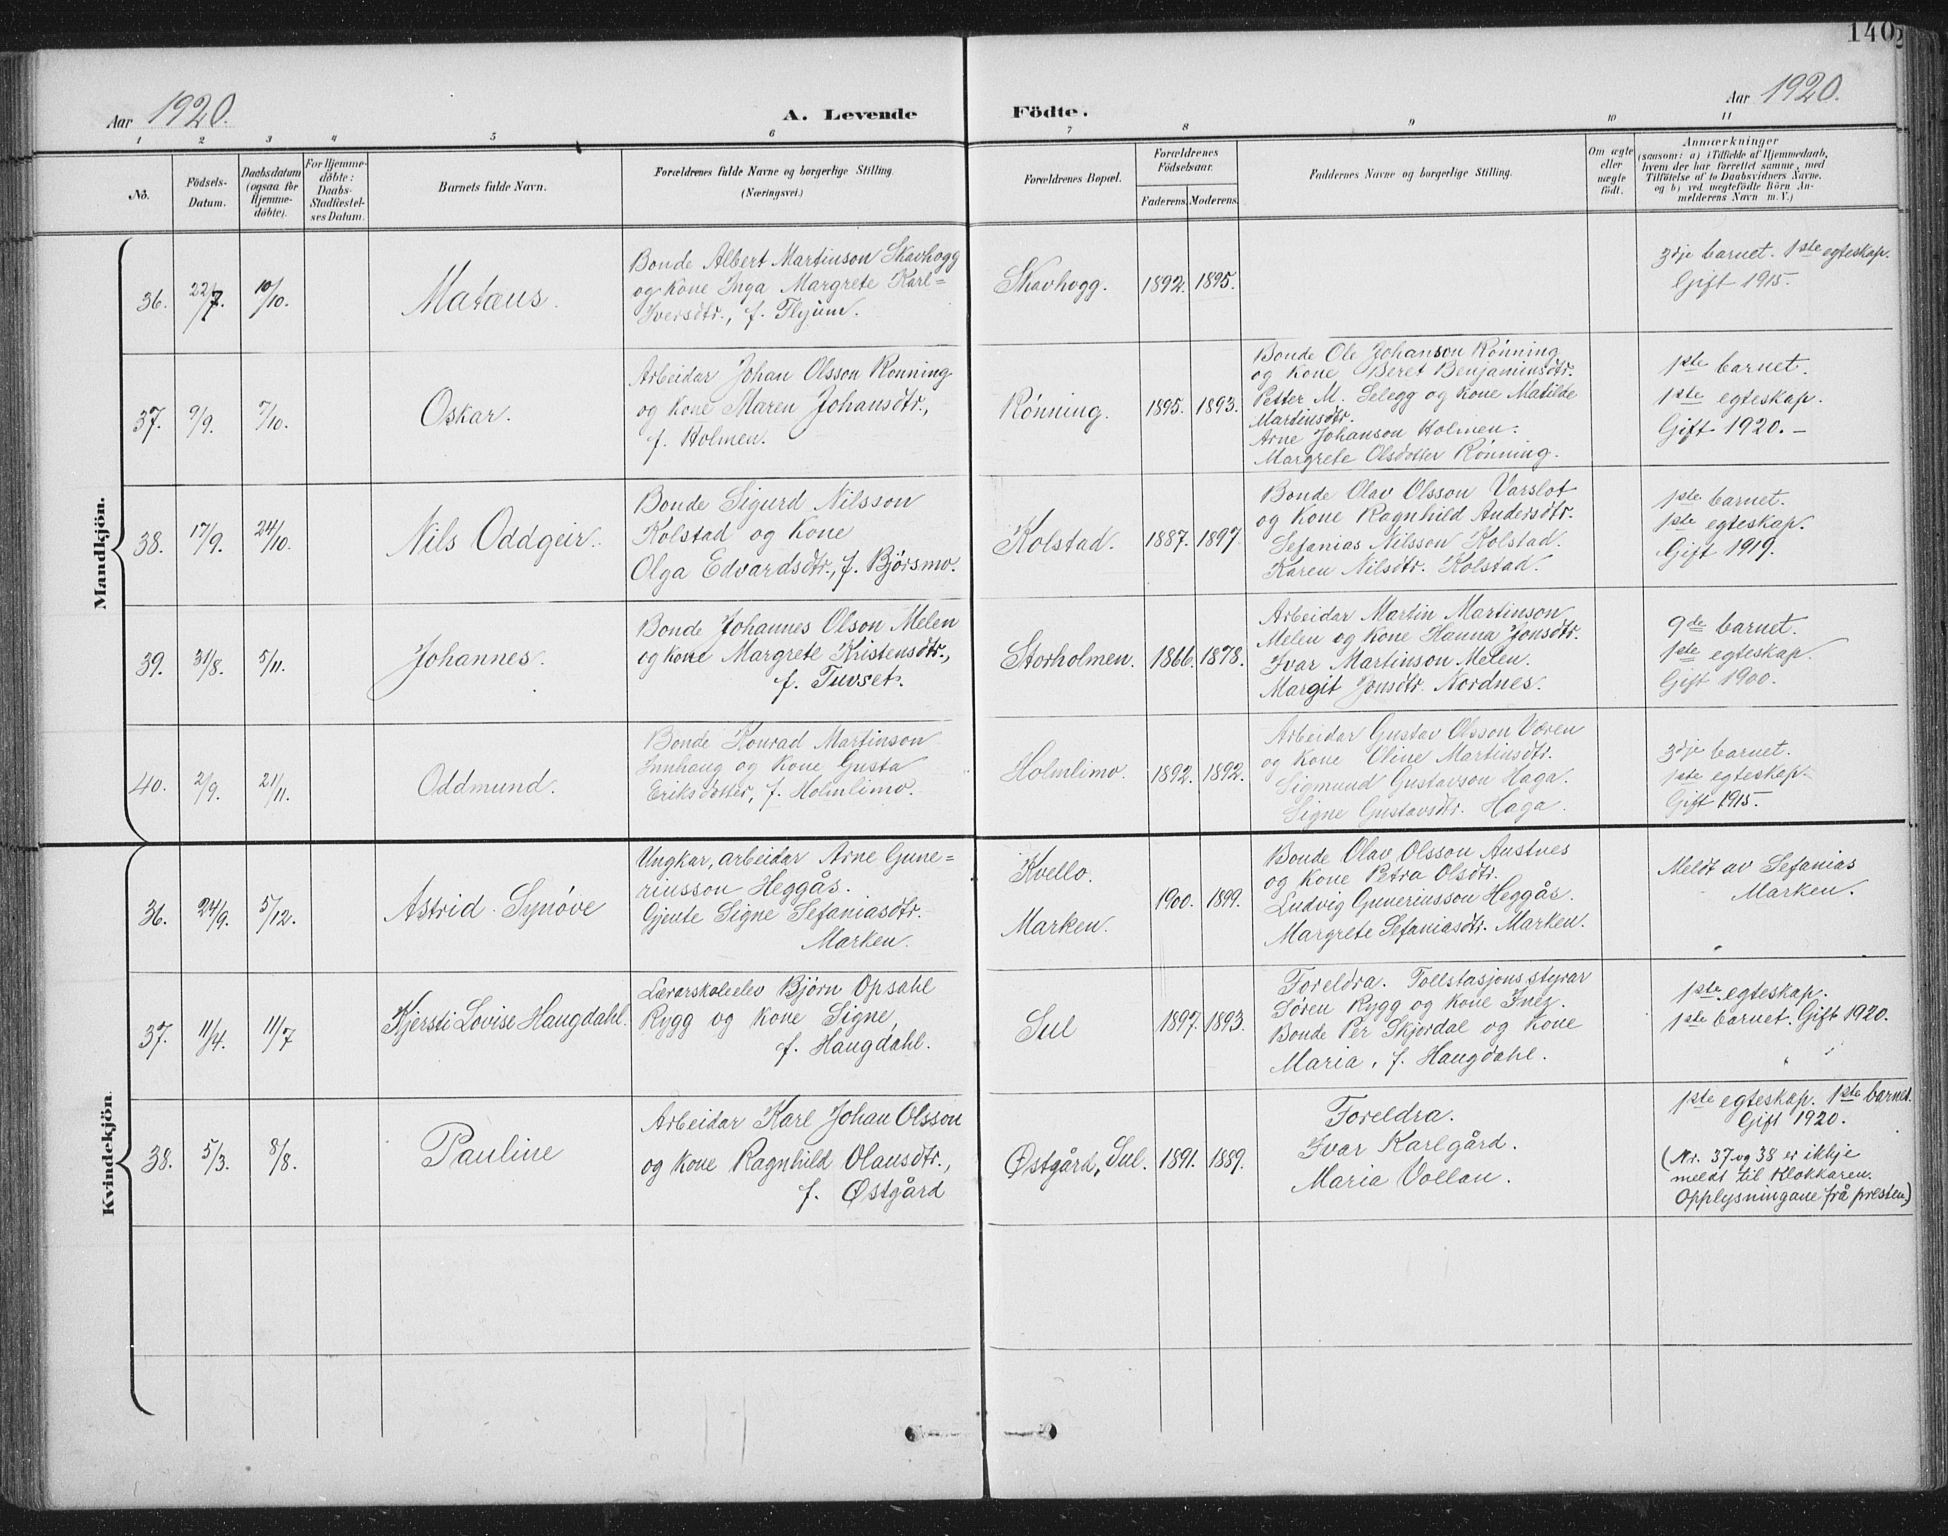 140
Aar 1920.
A. Levende Födte.
Aar 1920.
1 2 3 4 5 6 7 8 9 10 11
No.
Födsels-Datum.
Daabsdatum (ogsaa for Hjemme-döbte).
For Hjemme-döbte: Daabs-Stadfæstel-ses Datum.
Barnets fulde Navn.
Forældrenes fulde Navne og borgerlige Stilling.
(Næringsvei.)
Forældrenes Bopæl.
Forældrenes Födselsaar.
Faderens. Moderens.
Faddernes Navne og borgerlige Stilling.
Om ægte eller uægte födt.
Anmærkninger
(saasom: a) i Tilfælde af Hjemmedaab,
hvem der har forrettet samme, med
Tilföielse af to Daabsvidners Navne,
og b) ved uægtefödte Börn An-
melderens Navn m. V.)
Mandkjön.
36. 22/7. 10/10.
Mataus.
Bonde Albert Martinson Skavhogg
og kone Inga Margrete Karl-
Iversdtr., f. Flyum.
Skavhogg.
1892. 1895.
3dje barnet. 1ste egteskap.
Gift 1915.
37. 9/9. 7/10.
Oskar.
Arbeidar Johan Olsson Rønning
og kone Maren Johansdtr.,
f. Holmen.
Rønning.
1895. 1893.
Bonde Ole Johanson Rønning
og kone Beret Benjaminsdtr.
Petter M. Selegg og kone Matilde
Martinsdtr.
Arne Johanson Holmen.
Margrete Olsdotter Rønning.
1ste barnet.
1ste egteskap.
Gift 1920.-
38. 17/9. 24/10.
Nils Oddgeir.
Bonde Sigurd Nilsson
Kolstad og kone
Olga Edvardsdtr., f. Bjørsmo.
Kolstad.
1887. 1897
Bonde Olav Olsson Varslot
og kone Ragnhild Andersdtr.
Sefanias Nilsson Kolstad.
Karen Nilsdtr. Kolstad.
1ste barnet.
1ste egteskap.
Gift 1919.
39. 31/8. 5/11.
Johannes.
Bonde Johannes Olson Melen
og kone Margrete Kristensdtr.,
f. Tuvset.
Storholmen.
1866. 1878.
Arbeidar Martin Martinson
Melen og kone Hanna Jonsdtr.
Ivar Martinson Melen.
Margit Jonsdtr. Nordnes.
9de barnet.
1ste egteskap.
Gift 1900.
40. 2/9. 21/11.
Oddmund.
Bonde Konrad Martinson
Innhaug og kone Gusta
Eriksdotter, f. Holmlimo.
Holmlimo.
1892. 1892.
Arbeidar Gustav Olsson Voren
og kone Oline Martinsdtr.
Sigmund Gustavson Haga.
Signe Gustavsdtr. Haga.
3dje barnet.
1ste egteskap.
Gift 1915.
Kvindekjön.
36. 24/9. 5/12.
Astrid Synøve
Ungkar, arbeidar Arne Gune-
riusson Heggås.
Gjente Signe Sefaniasdtr.
Marken.
Kvello.
Marken.
1900. 1899.
Bonde Olav Olsson Austnes
og kone Petra Olsdtr.
Ludvig Guneriusson Heggås.
Margrete Sefaniasdtr. Marken.
Meldt av Sefanias
Marken.
37. 11/4. 11/7
Kjersti Lovise Haugdahl.
Lærarskoleelev Bjørn Opsahl
Rygg og kone Signe,
f. Haugdahl.
Sul
1897. 1893.
Foreldra. Tollstasjonsstyrar
Søren Rygg og kone Inez.
Bonde Per Skjørdal og kone
Maria, f. Haugdahl.
1ste egteskap.
1ste barnet. Gift 1920.
38. 5/3. 8/8.
Pauline
Arbeidar Karl Johan Olsson
og kone Ragnhild Olausdtr.,
f. Østgård
Østgård, Sul.
1891. 1889.
Foreldra.
Ivar Karlgård.
Maria Vollan.
1ste egteskap. 1ste barnet.
Gift 1920.
(Nr. 37 og 38 er ikkje
meldt til klokkaren.
Opplysningane frå presten)